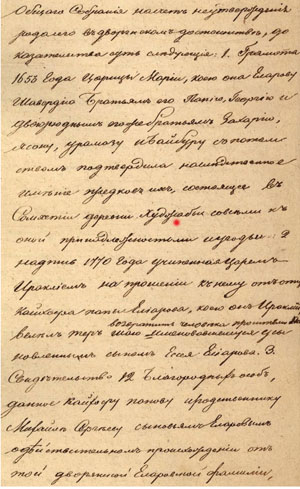 Общаго Собранія насчетъ неутвержденія
рода его въ дворянскомъ достоинствѣ, до
казательства суть слѣдующія: 1. Грамота
1653 Года Царицы Маріи, коею она Еларову
Братьямъ его Папію, Георгію и
Двоюроднымъ его братьямъ Захарію,
и Байбуру съ потом
ствомъ подтвердила наслѣдственное
имѣніе предковъ ихъ, состоящее въ
Сомхетіи деревни совсѣми къ
оной принадлежностями 2
надпись 1770 Года учиненная Царемъ
Иракліемъ на прошеніи къ нему отъ отца
Кайхосра папы Еларова, коею онъ Ираклій
велѣлъ возвратить человека
усы
новленнымъ сыномъ Есея Еларова. 3.
Свидѣтельство 12 Благородныхъ особъ,
данное Кайхосру попову и родственнику
Михайлѣ сыновьямъ Еларовымъ
о дѣйствительномъ происхожденіи отъ
той дворянской Еларовой фамиліи,